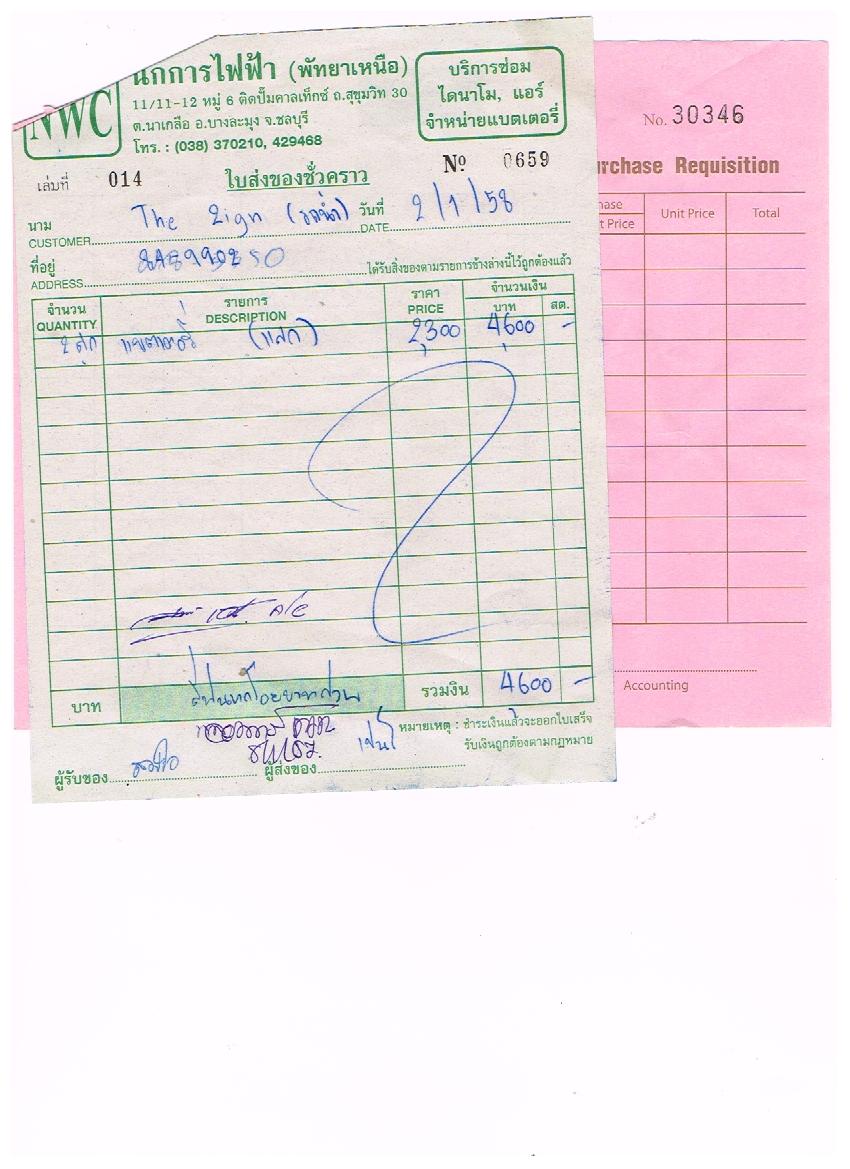 นกการไฟฟ้า (พัทยาเหนือ)
NWC
11/11-12 หมู่ 6 ติดปั๊มคาลเท็กซ์ ถ.สุขุมวิท 30
ต.นาเกลือ อ.บางละมุง จ.ชลบุรี
โทร. : (038) 370210, 429468
บริการซ่อม
ไดนาโม, แอร์
จำหน่ายแบตเตอรี่
เล่มที่ 014
ใบส่งของชั่วคราว
Nº 0659
นาม
CUSTOMER The Sign
วันที่
DATE 2/1/58
ที่อยู่
ADDRESS
ได้รับสิ่งของตามรายการข้างล่างนี้ไว้ถูกต้องแล้ว
จำนวน รายการ ราคา จำนวนเงิน
QUANTITY DESCRIPTION PRICE บาท สต.
2 ลูก แบตเตอรี่ 2,300 4,600 -
A/C
บาท สี่พันหกร้อยบาทถ้วน รวมเงิน 4,600 -
หมายเหตุ : ชำระเงินแล้วจะออกใบเสร็จ
รับเงินถูกต้องตามกฎหมาย
ผู้รับของ ผู้ส่งของ
No. 30346
urchase Requisition
hase
t Price Unit Price Total
Accounting